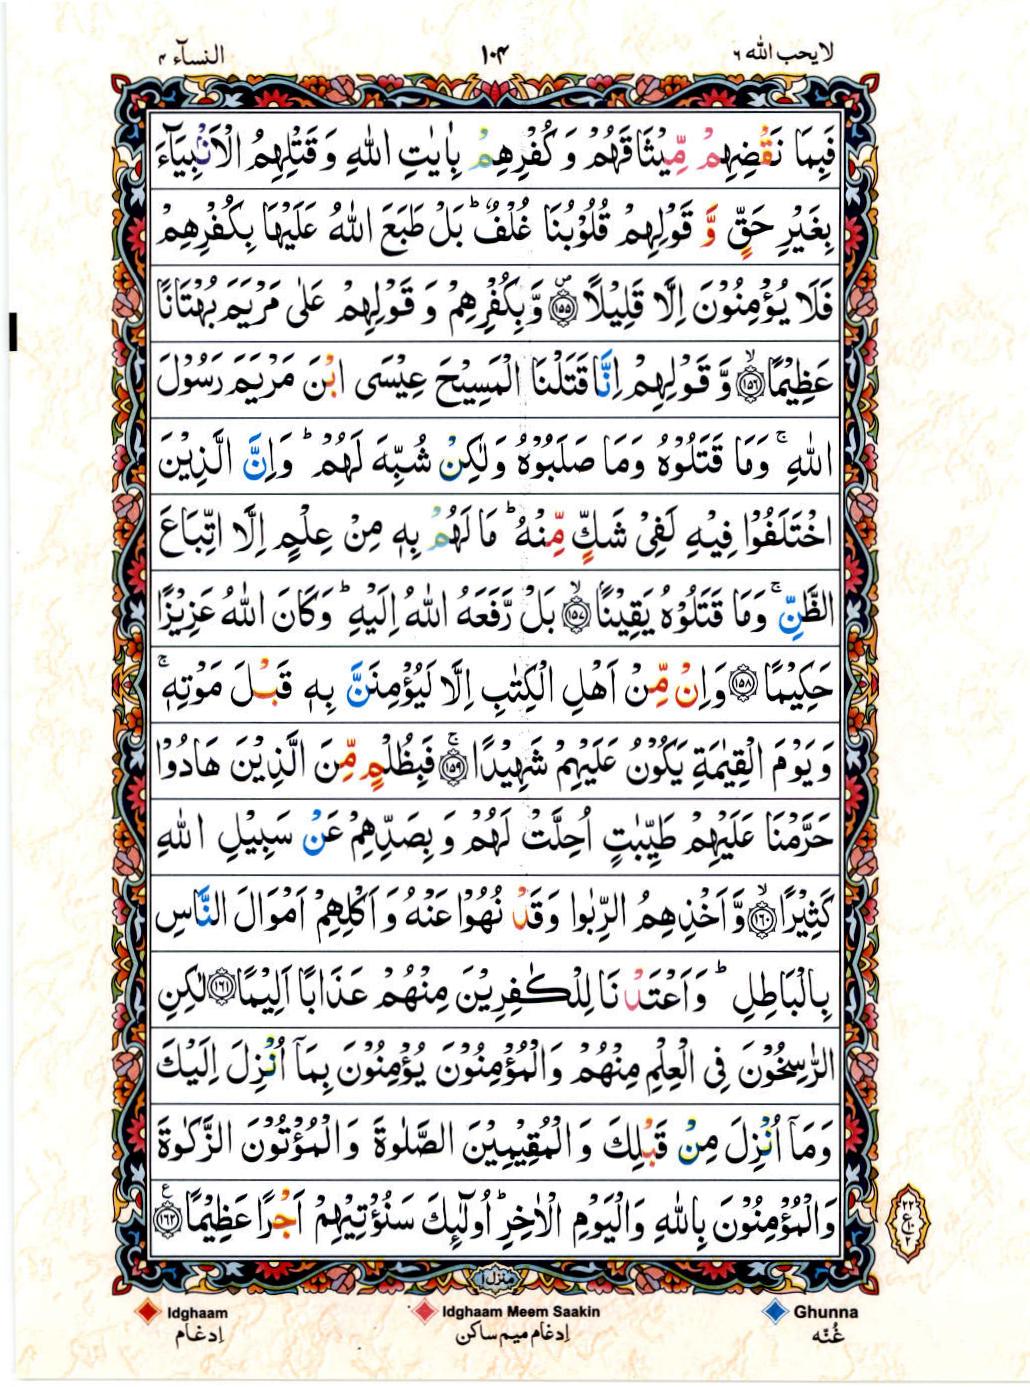 النسآء ۴
۱۰۴
لا یحب الله ۶
فَبِمَا نَقْضِهِمْ مِّیْثَاقَهُمْ وَ كُفْرِهِمْ بِاٰیٰتِ اللّٰهِ وَ قَتْلِهِمُ الْاَنْۢبِیَآءَ
بِغَیْرِ حَقٍّ وَّ قَوْلِهِمْ قُلُوْبُنَا غُلْفٌ ؕ بَلْ طَبَعَ اللّٰهُ عَلَیْهَا بِكُفْرِهِمْ
فَلَا یُؤْمِنُوْنَ اِلَّا قَلِیْلًا ۪﴿۱۵۵﴾ وَّ بِكُفْرِهِمْ وَ قَوْلِهِمْ عَلٰی مَرْیَمَ بُهْتَانًا
عَظِیْمًا ۙ﴿۱۵۶﴾ وَّ قَوْلِهِمْ اِنَّا قَتَلْنَا الْمَسِیْحَ عِیْسَی ابْنَ مَرْیَمَ رَسُوْلَ
اللّٰهِ ۚ وَمَا قَتَلُوْهُ وَمَا صَلَبُوْهُ وَلٰكِنْ شُبِّهَ لَهُمْ ؕ وَاِنَّ الَّذِیْنَ
اخْتَلَفُوْا فِیْهِ لَفِیْ شَكٍّ مِّنْهُ ؕ مَا لَهُمْ بِهٖ مِنْ عِلْمٍ اِلَّا اتِّبَاعَ
الظَّنِّ ۚ وَمَا قَتَلُوْهُ یَقِیْنًا ۙ﴿۱۵۷﴾ بَلْ رَّفَعَهُ اللّٰهُ اِلَیْهِ ؕ وَكَانَ اللّٰهُ عَزِیْزًا
حَكِیْمًا ﴿۱۵۸﴾ وَاِنْ مِّنْ اَهْلِ الْكِتٰبِ اِلَّا لَیُؤْمِنَنَّ بِهٖ قَبْلَ مَوْتِهٖ ۚ
وَ یَوْمَ الْقِیٰمَةِ یَكُوْنُ عَلَیْهِمْ شَهِیْدًا ۚ﴿۱۵۹﴾ فَبِظُلْمٍ مِّنَ الَّذِیْنَ هَادُوْا
حَرَّمْنَا عَلَیْهِمْ طَیِّبٰتٍ اُحِلَّتْ لَهُمْ وَ بِصَدِّهِمْ عَنْ سَبِیْلِ اللّٰهِ
كَثِیْرًا ۙ﴿۱۶۰﴾ وَّ اَخْذِهِمُ الرِّبٰوا وَقَدْ نُهُوْا عَنْهُ وَ اَكْلِهِمْ اَمْوَالَ النَّاسِ
بِالْبَاطِلِ ؕ وَ اَعْتَدْنَا لِلْكٰفِرِیْنَ مِنْهُمْ عَذَابًا اَلِیْمًا ﴿۱۶۱﴾ لٰكِنِ
الرّٰسِخُوْنَ فِی الْعِلْمِ مِنْهُمْ وَالْمُؤْمِنُوْنَ یُؤْمِنُوْنَ بِمَاۤ اُنْزِلَ اِلَیْكَ
وَمَاۤ اُنْزِلَ مِنْ قَبْلِكَ وَ الْمُقِیْمِیْنَ الصَّلٰوةَ وَ الْمُؤْتُوْنَ الزَّكٰوةَ
وَالْمُؤْمِنُوْنَ بِاللّٰهِ وَالْیَوْمِ الْاٰخِرِ ؕ اُولٰٓئِكَ سَنُؤْتِیْهِمْ اَجْرًا عَظِیْمًا ﴿۱۶۲﴾ ع
۲۲
ع
۲
منزل ۱
Idghaam
ادغام
Idghaam Meem Saakin
ادغام میم ساکن
Ghunna
غُنّه